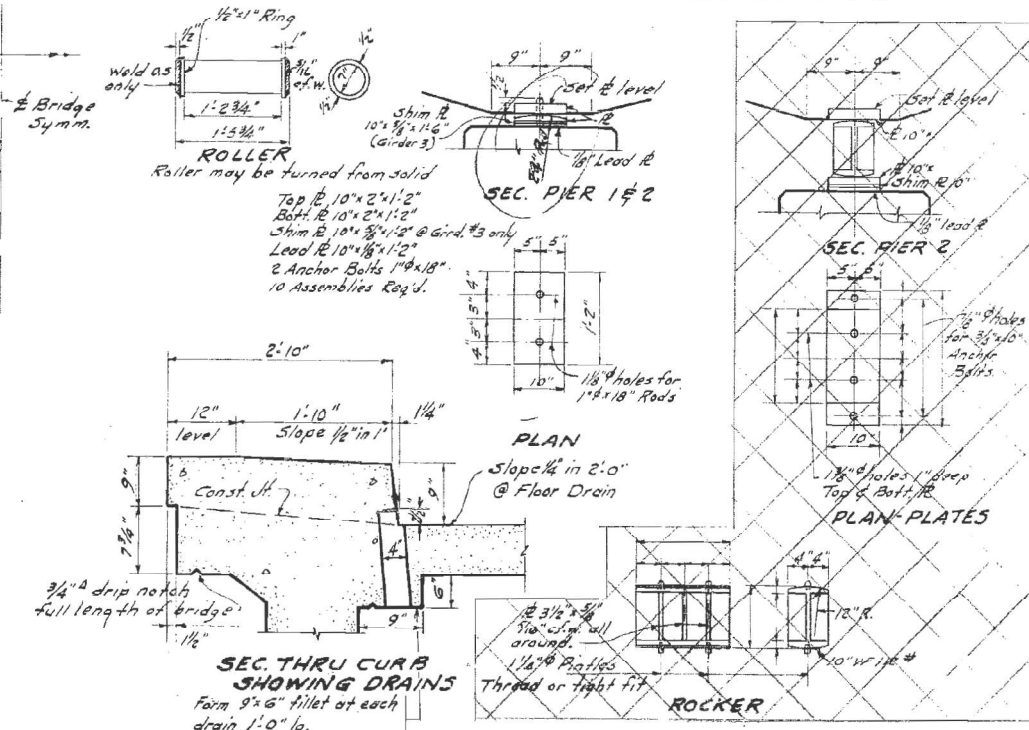 1/2"x1" Ring
1/2"
1"
Weld as
only
3/12"
c.f.w.
1/2"
7"
1/2"
1'-2 3/4"
1'-5 3/4"
℄ Bridge
Symm.
ROLLER
Roller may be turned from solid
Top ℞ 10"x2"x1'-2"
Bott. ℞ 10"x2"x1'-2"
Shim ℞ 10"x5/8"x1'-2" @ Gird. #3 only
Lead ℞ 10"x1/8"x1'-2"
2 Anchor Bolts 1"φx18"
10 Assemblies Req'd.
9" 9"
Set ℞ level
Shim ℞
10"x5/8"x1'-6"
(Girder 3)
℞
1/8" Lead ℞
SEC. PIER 1 & 2
5" 5"
4" 3" 3" 4"
1'-2"
10"
1 1/8"φ holes for
1"φx18" Rods
PLAN
9" 9"
Set ℞ level
℞ 10"x
℞ 10"x
Shim ℞ 10"
1/8" lead ℞
SEC. PIER 2
5"
7/8"φ holes
for 3/4"x10"
Anchor
Bolts
10"
holes 1" deep
Top & Bott. ℞
PLAN-PLATES
2'-10"
12"
level
1'-10"
Slope 1/2" in 1'
1 1/4"
Slope 1/4" in 2'-0"
@ Floor Drain
9"
Const. Jt.
9"
1/2"
7 3/4"
4"
6"
3/4" Δ drip notch
full length of bridge
1 1/2"
9"
SEC. THRU CURB
SHOWING DRAINS
Form 9"x6" fillet at each
drain 1'-0" lg.
℞ 3 1/2"x5/8"
5/16" c.f.w. all
around.
1 1/8"φ Pintles
Thread or tight fit
4" 4"
12" R.
ROCKER